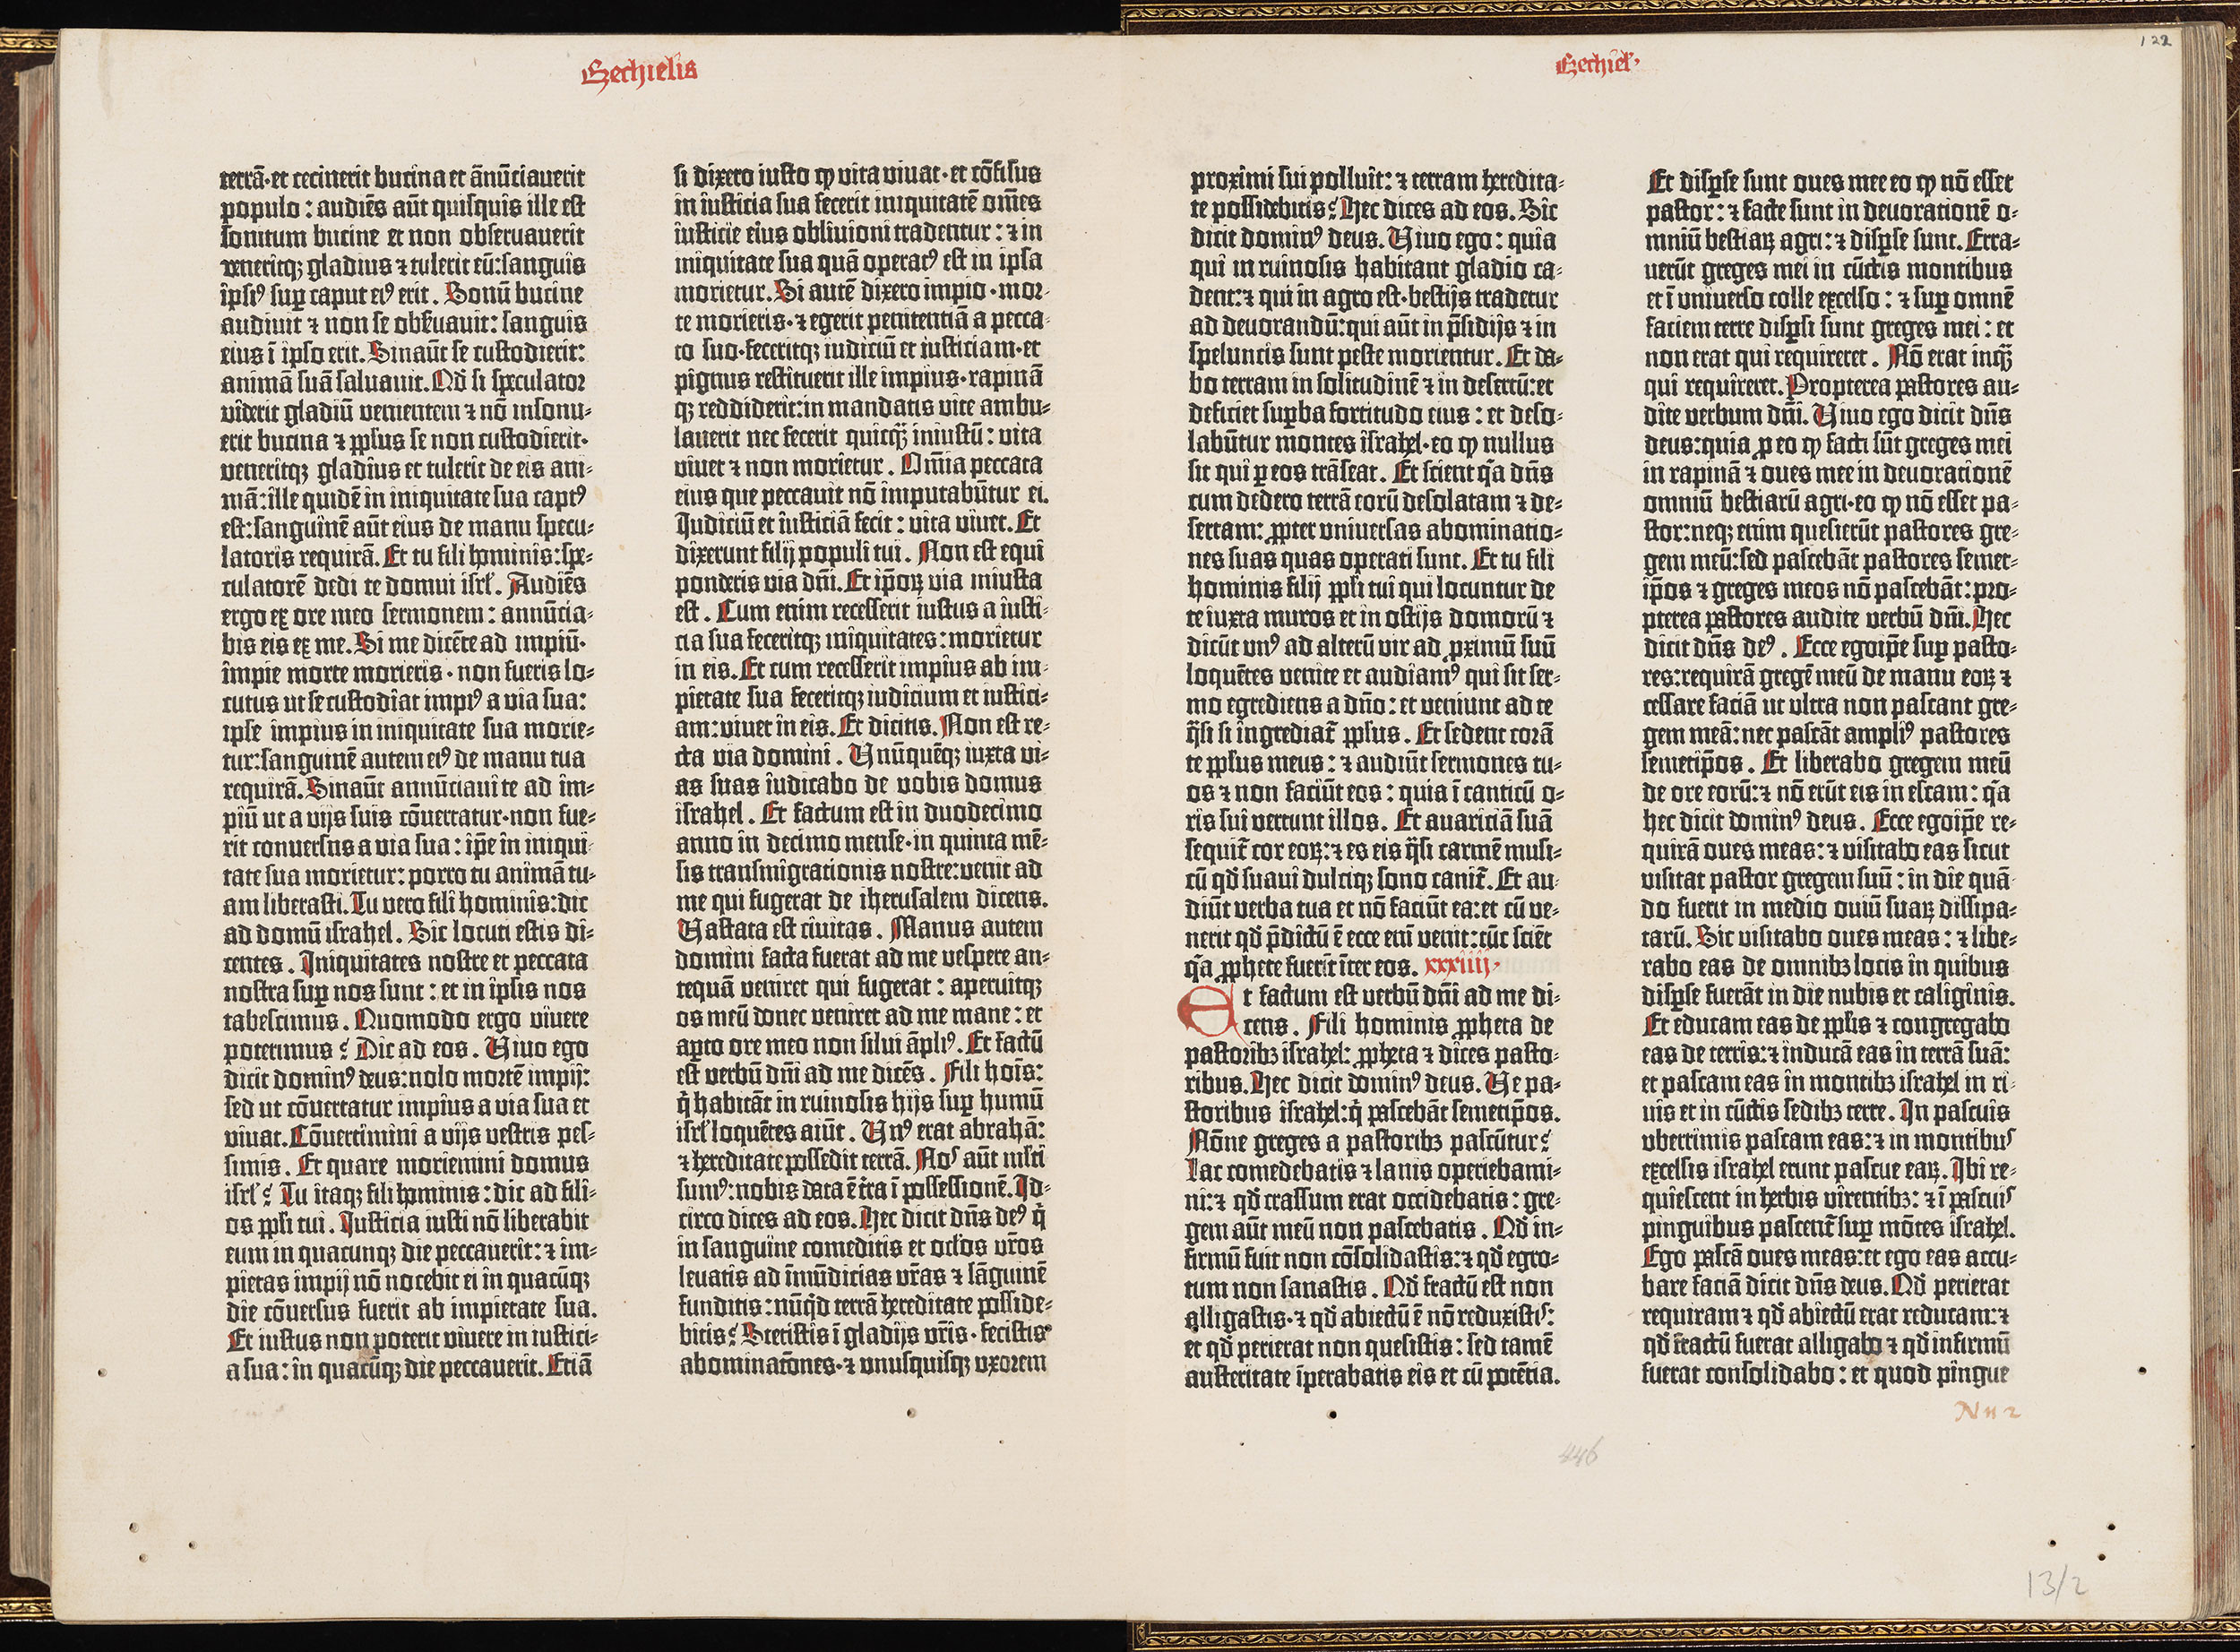 Ezechielis
terrā·et cecinerit bucina et ānūciauerit
populo : audiēs aūt quisquis ille est
sonitum bucine et non obseruauerit
veneritqʒ gladius ⁊ tulerit eū:sanguis
ipsiꝰ suꝑ caput eiꝰ erit. Sonū bucine
audiuit ⁊ non se obẜuauit: sanguis
eius ī ipso erit. Sinaūt se custodierit:
animā suā saluauit. Qd̄ si speculator
viderit gladiū venientem ⁊ nō insonu-
erit bucina ⁊ ꝓplus se non custodierit·
veneritqʒ gladius et tulerit de eis ani-
mā:ille quidē in iniquitate sua captꝰ
est:sanguinē aūt eius de manu specu-
latoris requirā. Et tu fili hominis:spe-
culatorē dedi te domui isrl̓. Audiēs
ergo ex ore meo sermonem : annūcia-
bis eis ex me. Si me dicēte ad impiū·
impie morte morieris · non fueris lo-
cutus ut se custodiat impiꝰ a via sua:
ipse impius in iniquitate sua morie-
tur:sanguinē autem eiꝰ de manu tua
requirā. Sinaūt annūciauite ad im-
piū ut a vijs suis cōuertatur·non fue-
rit conuersus a via sua : ip̄e in iniqui-
tate sua morietur: porro tu animā tu-
am liberasti. Tu vero fili hominis:dic
ad domū israhel. Sic locuti estis di-
centes . Iniquitates nostre et peccata
nostra suꝑ nos sunt : et in ipsis nos
tabescimus . Quomodo ergo vivere
poterimus ? Dic ad eos . Vivo ego
dicit dominꝰ deus:nolo mortē impij:
sed ut cōuertatur impius a via sua et
viuat. Cōuertimini a vijs vestris pes-
simis . Et quare moriemini domus
isrl̓ ? Tu itaqʒ fili hominis : dic ad fili-
os ꝓpli tui . Iusticia iusti nō liberabit
eum in quacunqʒ die peccauerit: ⁊ im-
pietas impij nō nocebit ei in quacūqʒ
die cōuersus fuerit ab impietate sua.
Et iustus non poterit viuere in iustici-
a sua : in quacūqʒ die peccauerit. Etiā
si dixero iusto ꝙ vita viuat · et cōfisus
in iusticia sua fecerit iniquitatē om̄es
iusticie eius obliuioni tradentur : ⁊ in
iniquitate sua quā operatꝰ est in ipsa
morietur. Si autē dixero impio · mor-
te morieris · ⁊ egerit penitentiā a pecca-
to suo·feceritqʒ iudiciū et iusticiam·et
pignus restituerit ille impius·rapinā
qʒ reddiderit:in mandatis vite ambu-
lauerit nec fecerit quicqʒ̄ iniustū : vita
viuet ⁊ non morietur . Om̄ia peccata
eius que peccauit nō imputabūtur ei.
Iudiciū et iusticiā fecit : vita viuet. Et
dixerunt filij populi tui . Non est equi
ponderis via dn̄i. Et ip̄oꝝ via iniusta
est . Cum enim recesserit iustus a iusti-
cia sua feceritqʒ iniquitates : morietur
in eis. Et cum recesserit impius ab im-
pietate sua feceritqʒ iudicium et iustici-
am:viuet in eis. Et dicitis. Non est re-
cta via domini . Vnūquēqʒ iuxta vi-
as suas iudicabo de vobis domus
israhel . Et factum est in duodecimo
anno in decimo mense·in quinta mē-
sis transmigrationis nostre:venit ad
me qui fugerat de iherusalem dicens.
Vastata est ciuitas . Manus autem
domini facta fuerat ad me vespere an-
tequā veniret qui fugerat : aperuitqʒ
os meū donec veniret ad me mane : et
aꝑto ore meo non silui āpliꝰ. Et factū
est verbū dn̄i ad me dicēs . Fili hoīs:
q̇ habitāt in ruinosis hijs suꝑ humū
isrl̓ loquētes aiūt . Vnꝰ erat abrahā:
⁊ hereditate possedit terrā. Nos aūt mĺti
sumꝰ:nobis data ē tra ī possessionē. Id-
circo dices ad eos. Hec dicit dn̄s deꝰ q̇
in sanguine comeditis et ocl̓os vr̄os
leuatis ad īmūdicias vr̄as ⁊ sāguinē
funditis : nūqd̄ terrā hereditate posside-
bitis? Stetistis ī gladijs vr̄is · fecistis
abominatōnes · ⁊ unusquisqʒ uxorem
Ezechiel̓·
122
proximi sui polluit: ⁊ terram heredita-
te possidebitis? Hec dices ad eos. Sic
dicit dominꝰ deus. Vivo ego : quia
qui in ruinosis habitant gladio ca-
dent:⁊ qui in agro est·bestijs tradetur
ad deuorandū:qui aūt in p̄sidijs ⁊ in
speluncis sunt peste morientur. Et da-
bo terram in solitudinē ⁊ in desertū:et
deficiet suꝑba fortitudo eius : et deso-
labūtur montes israhel·eo ꝙ nullus
sit qui ꝑ eos trāseat . Et scient q̄a dn̄s
cum dedero terrā eorū desolatam ⁊ de-
sertam: ꝓpter vniuersas abominatio-
nes suas quas operati sunt. Et tu fili
hominis filij ꝓpli tui qui locuntur de
te iuxta muros et in ostijs domorū ⁊
dicūt vnꝰ ad alterū vir ad ꝓximū suū
loquētes venite et audiamꝰ qui sit ser-
mo egrediens a dn̄o : et veniunt ad te
q̄si si ingrediat̄ ꝓplus . Et sedent corā
te ꝓplus meus : ⁊ audiūt sermones tu-
os ⁊ non faciūt eos : quia ī canticū o-
ris sui vertunt illos. Et auariciā suā
sequit̄ cor eoꝝ: ⁊ es eis q̄si carmē musi-
cū qd̄ suaui dulciqʒ sono canit̄. Et au-
diūt verba tua et nō faciūt ea:et cū ve-
nerit qd̄ p̄dictū ē ecce eni venit:tūc sciēt
q̄a ꝓphete fuerīt īter eos. xxxiiij·
Et factum est verbū dn̄i ad me di-
cens . Fili hominis ꝓpheta de
pastoribʒ israhel: ꝓpheta ⁊ dices pasto-
ribus. Hec dicit dominꝰ deus. Ve pa-
storibus israhel:q̇ pascebāt semetip̄os.
Nōne greges a pastoribʒ pascūtur?
Lac comedebatis ⁊ lanis operiebami-
ni: ⁊ qd̄ crassum erat occidebatis : gre-
gem aūt meū non pascebatis . Qd̄ in-
firmū fuit non cōsolidastis: ⁊ qd̄ egro-
tum non sanastis . Qd̄ fractū est non
alligastis · ⁊ qd̄ abiectū ē nō reduxistis:
et qd̄ perierat non quesistis : sed tamē
austeritate īperabatis eis et cū potētia.
Et disꝑse sunt oues mee eo ꝙ nō esset
pastor : ⁊ facte sunt in deuorationē o-
mniū bestiaꝝ agri : ⁊ disꝑse sunt. Erra-
uerūt greges mei in cūctis montibus
et ī vniuerso colle excelso : ⁊ suꝑ omnē
faciem terre disꝑsi sunt greges mei : et
non erat qui requireret . Nō erat inqʒ̄
qui requireret. Propterea pastores au-
dite verbum dn̄i. Vivo ego dicit dn̄s
deus:quia ꝓ eo ꝙ facti sūt greges mei
in rapinā ⁊ oues mee in deuorationē
omniū bestiarū agri·eo ꝙ nō esset pa-
stor:neqʒ enim quesierūt pastores gre-
gem meū:sed pascebāt pastores semet-
ip̄os ⁊ greges meos nō pascebāt : pro-
pterea pastores audite verbū dn̄i. Hec
dicit dn̄s deꝰ . Ecce egoip̄e suꝑ pasto-
res:requirā gregē meū de manu eoꝝ ⁊
cessare faciā ut vltra non pascant gre-
gem meā: nec pascāt ampliꝰ pastores
semetip̄os . Et liberabo gregem meū
de ore eorū: ⁊ nō erūt eis in escam : q̄a
hec dicit dominꝰ deus. Ecce egoip̄e re-
quirā oues meas: ⁊ visitabo eas sicut
visitat pastor gregem suū : in die quā-
do fuerit in medio ouiū suaꝝ dissipa-
tarū. Sic visitabo oues meas : ⁊ libe-
rabo eas de omnibʒ locis in quibus
disꝑse fuerāt in die nubis et caliginis.
Et educam eas de ꝓplis ⁊ congregabo
eas de terris: ⁊ inducā eas in terrā suā:
et pascam eas in montibʒ israhel in ri-
uis et in cūctis sedibʒ terre . In pascuis
vberrimis pascam eas: ⁊ in montibus
excelsis israhel erunt pascue eaꝝ. Ibi re-
quiescent in herbis virentibʒ: ⁊ ī pascuis
pinguibus pascent̄ suꝑ mōtes israhel.
Ego pascā oues meas:et ego eas accu-
bare faciā dicit dn̄s deus. Qd̄ perierat
requiram ⁊ qd̄ abiectū erat reducam: ⁊
qd̄ fractū fuerat alligabo ⁊ qd̄ infirmū
fuerat consolidabo : et quod pingue
Nn2
446
13/2